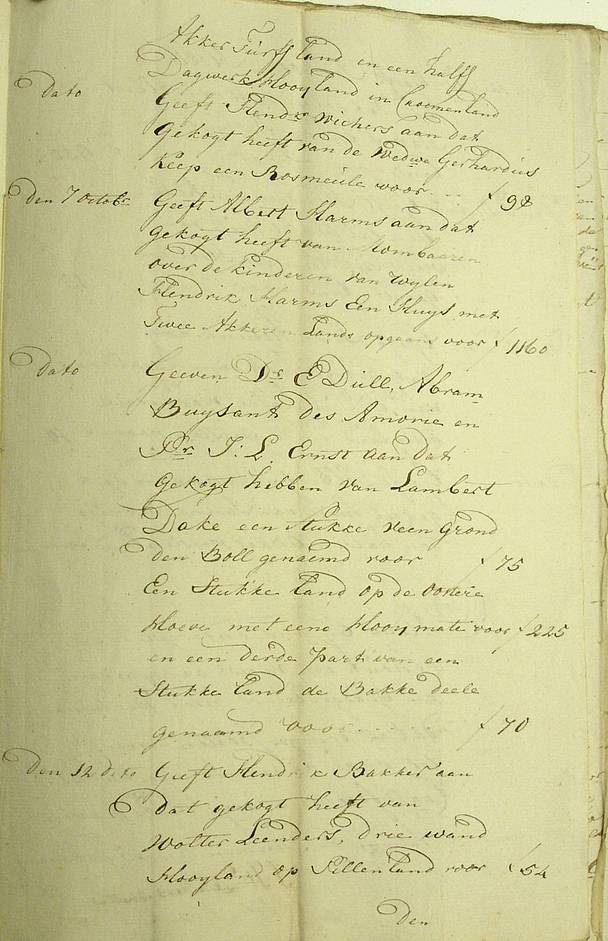 Akker Turff land en een halff
Dagwerk Hooyland in
dato Geeft Hendr. Wichers aan dat
gekogt heeft van de Wedwe Gerhardus
Keep een Rosmeule voor ... f 98
Den 7 Octobr Geeft Albert Harms aan dat
gekogt heeft van Mombaeren
over de kinderen van wylen
Hendrik Harms Een Huys met
Twee Akkeren Lands opgaans voor f 1160
dato Geeven Ds E Dull, Abram
Buysant des Amorie en
Pr J: L. Ernst aan dat
gekogt hebben van Lambert
Dake een stukke veen grond
den Boll genaemd voor f 75
Een Stukke Land op de oostere
Hoeve met eene Hooy mate voor f 225
en een derde part van een
Stukke Land de Bakke deele
genaamd voor ...... f 70
Den 12 dito Geeft Hendrik Bakker aan
dat gekogt heeft van
Wolter Leenders, drie wand
Hooyland op Sillenland voor f 54
Den